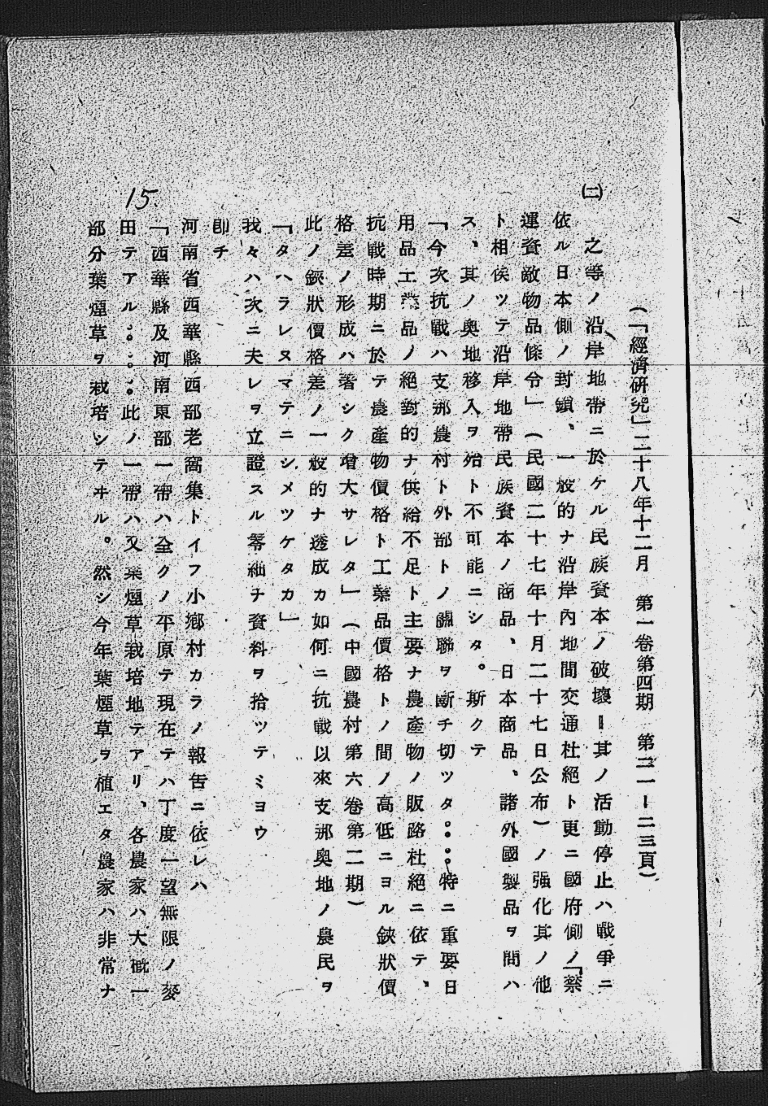 (「經濟研究」二十八年十二月 第一卷第四期 第二一ー二三頁)
(二) 之等ノ沿岸地帶ニ於ケル民族資本ノ破壞ー其ノ活動停止ハ戰爭ニ
依ル日本側ノ封鎖、一般的ナ沿岸內地間交通杜絕ト更ニ國府側ノ「禁
運資敵物品條令」(民國二十七年十月二十七日公布)ノ強化其ノ他
ト相俟ツテ沿岸地帶民族資本ノ商品、日本商品、諸外國製品ヲ問ハ
ス、其ノ奧地移入ヲ殆ト不可能ニシタ。斯クテ
「今次抗戰ハ支那農村ト外部トノ關聯ヲ斷チ切ツタ。。。。特ニ重要日
用品工業品ノ絕對的ナ供給不足ト主要ナ農產物ノ販路杜絕ニ依テ、
抗戰時期ニ於テ農產物價格ト工業品價格トノ間ノ高低ニヨル鋏狀價
格差ノ形成ハ著シク增大サレタ」(中國農村第六卷第二期)
此ノ鋏狀價格差ノ一般的ナ透成カ如何ニ抗戰以來支那奧地ノ農民ヲ
「タハラレヌマテニシメツケタカ」
我々ハ次ニ夫レヲ立證スル零細ナ資料ヲ拾ツテミヨウ
卽チ
河南省西華縣西部老窩集トイフ小鄉村カラノ報吿ニ依レハ
「西華縣及河南東部一帶ハ全クノ平原テ現在テハ丁度一望無限ノ麥
田テアル。。。。此ノ一帶ハ又葉煙草栽培地テアリ、各農家ハ大槪一
部分葉煙草ヲ栽培シテヰル。然シ今年葉煙草ヲ植エタ農家ハ非常ナ
15